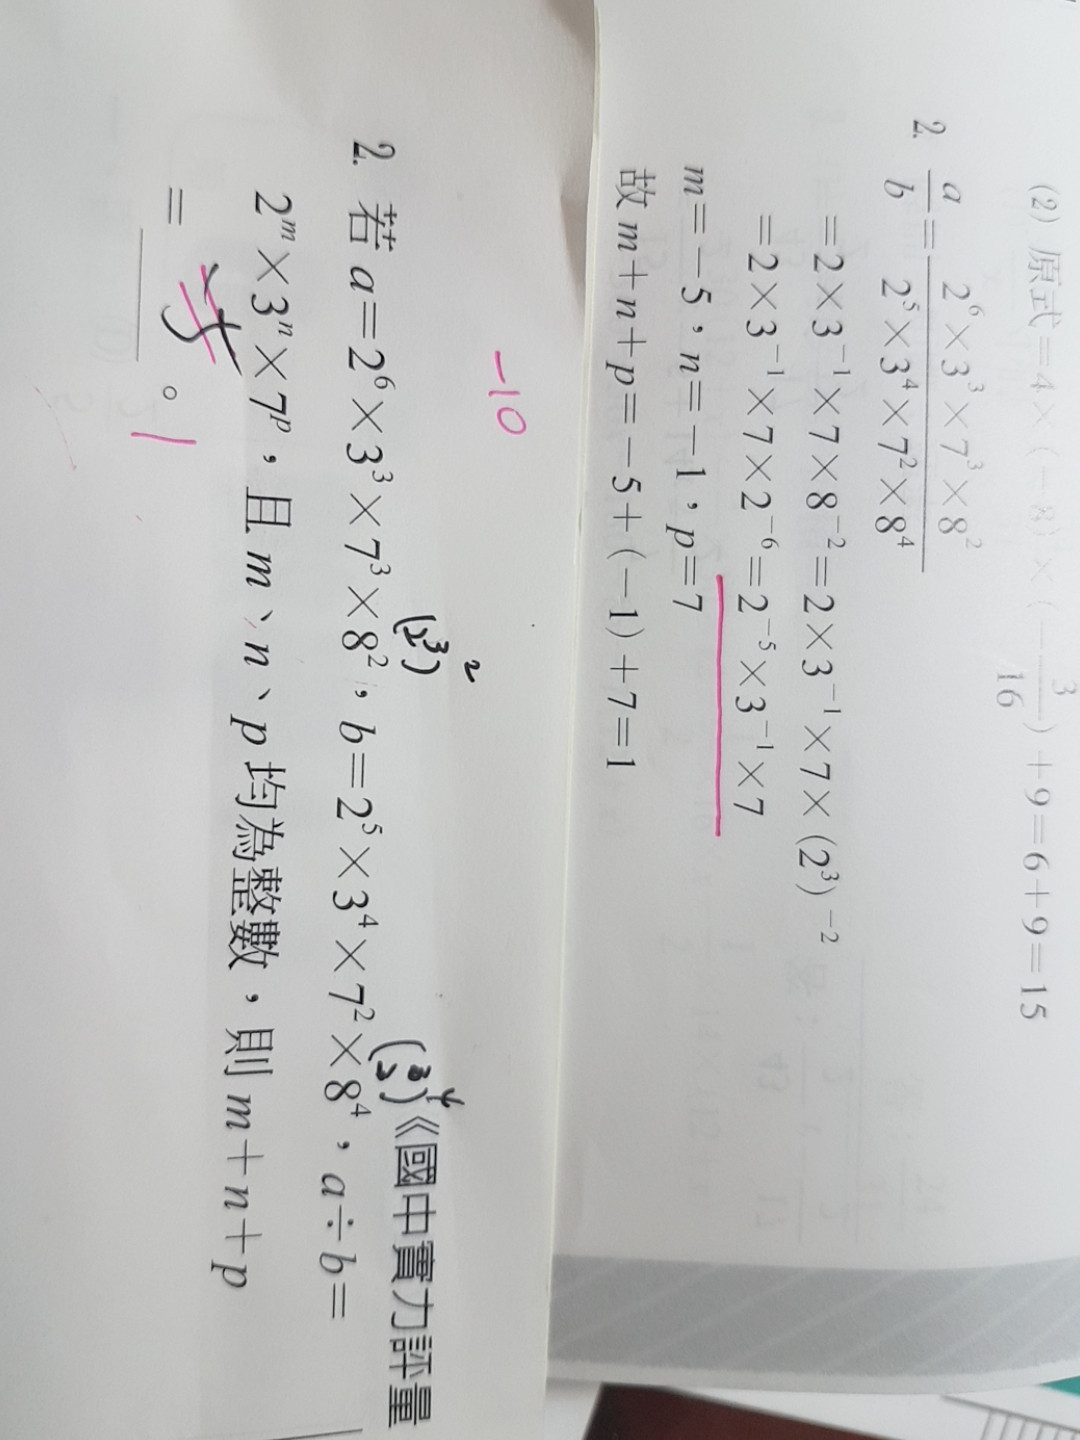 (2) 原式=4×(-8)×(-3/16)+9=6+9=15
2. a/b=2⁶×3³×7³×8²/2⁵×3⁴×7²×8⁴
=2×3⁻¹×7×8⁻²=2×3⁻¹×7×(2³)⁻²
=2×3⁻¹×7×2⁻⁶=2⁻⁵×3⁻¹×7
m=-5,n=-1,p=7
故m+n+p=-5+(-1)+7=1
-10
(2³)²
(2³)⁴《國中實力評量
2. 若a=2⁶×3³×7³×8²,b=2⁵×3⁴×7²×8⁴,a÷b=
2ᵐ×3ⁿ×7ᵖ,且m、n、p均為整數,則m+n+p
= -5 。 1